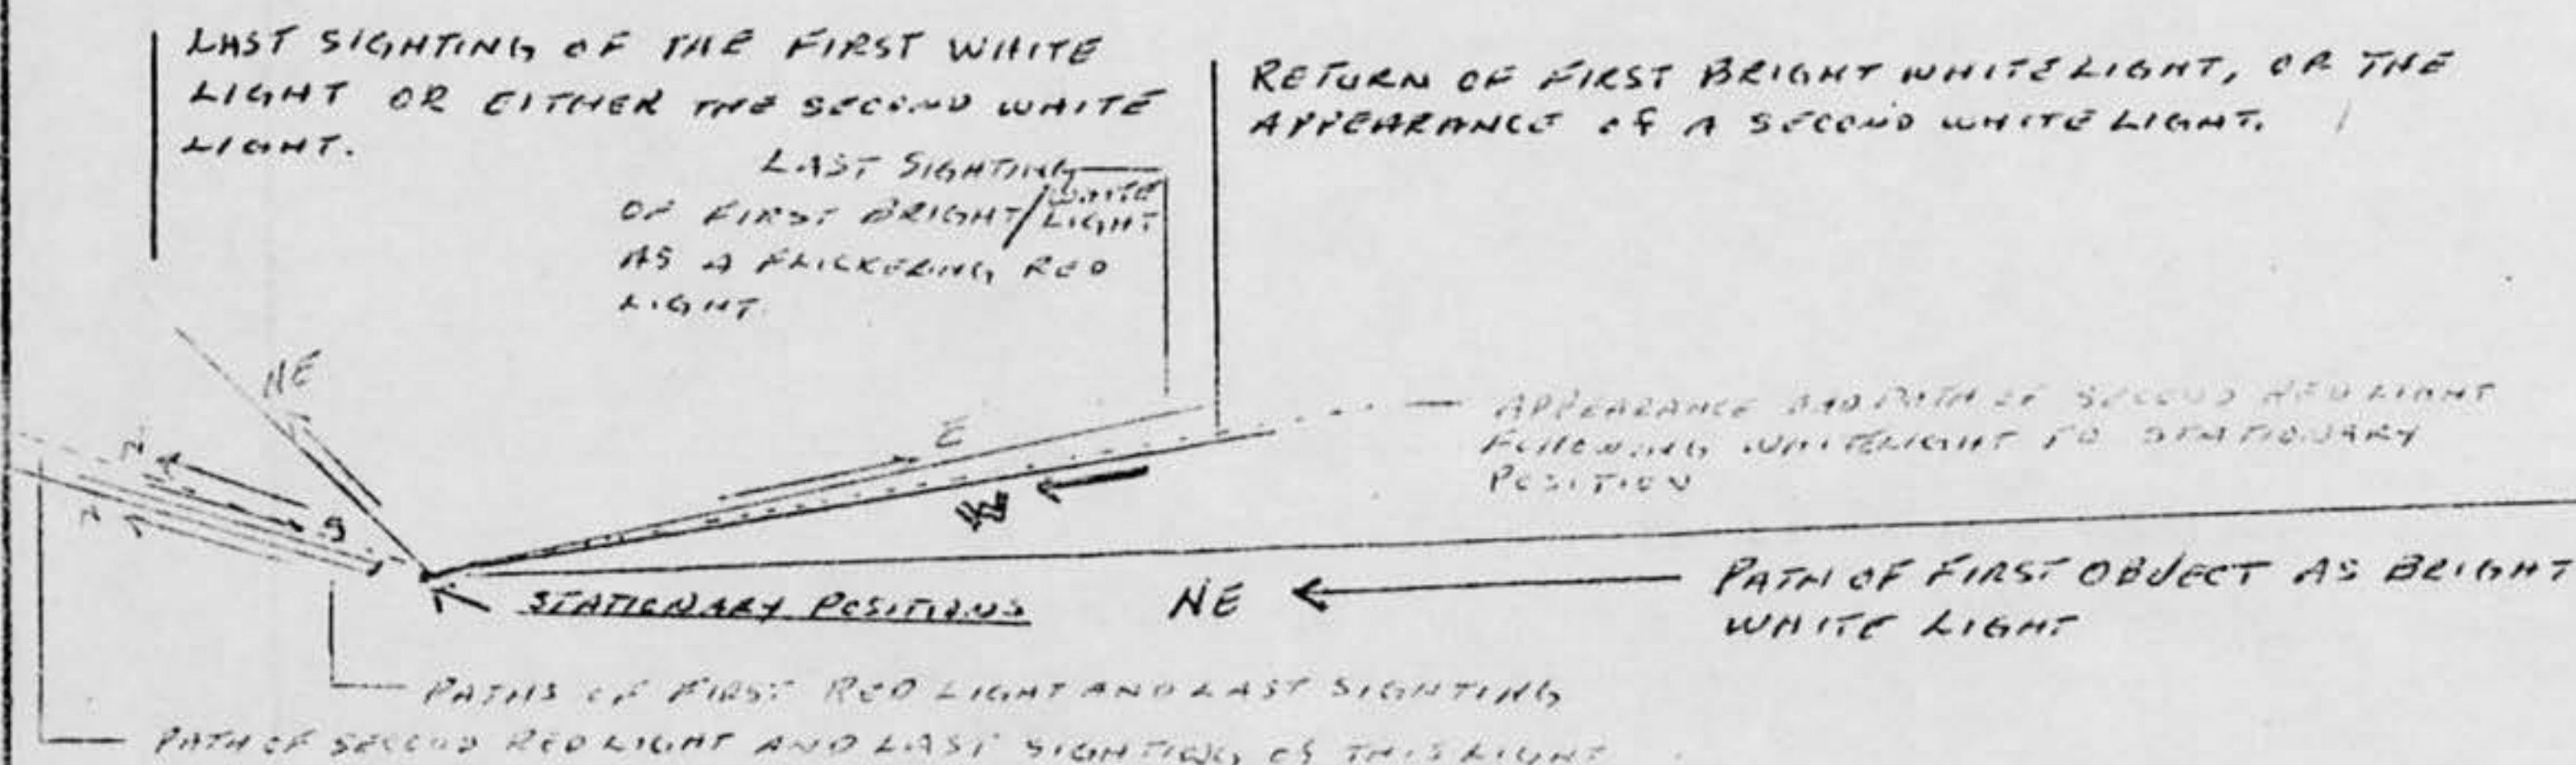 LAST SIGHTING OF THE FIRST WHITE
LIGHT OR EITHER THE SECOND WHITE
LIGHT.
RETURN OF FIRST BRIGHT WHITE LIGHT, OR THE
APPEARANCE OF A SECOND WHITE LIGHT.
LAST SIGHTING
OF FIRST BRIGHT/WHITE LIGHT
AS A FLICKERING RED
LIGHT
NE
N
S
N
E
APPEARANCE AND PATH OF SECOND RED LIGHT
FOLLOWING WHITE LIGHT TO STATIONARY
POSITION
STATIONARY POSITIONS
NE
PATH OF FIRST OBJECT AS BRIGHT
WHITE LIGHT
PATHS OF FIRST RED LIGHT AND LAST SIGHTING
PATH OF SECOND RED LIGHT AND LAST SIGHTING OF THIS LIGHT